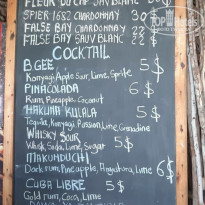 FLEUR DU CAP SAUV BLANC 30$
SPIER 1682 CHARDONNAY 30$
FALSE BAY CHARDONNAY 22$
FALSE BAY SAUV BLANC 22$
COCKTAIL
B.GEE 5$
Konyagi, Apple Sour, Lime, Sprite
PINACOLADA 6$
Rum, Pineapple, Coconut
HAKUNA KULALA 5$
Tequila, Konyagi, Passion, Lime, Grenadine
WHISKY SOUR 5$
Whisk, Soda, Lime, Sugar
MAKUNDUCHI 6$
Dark rum, Pineapple, Angustura, Lime
CUBA LIBRE 5$
Gold rum, Coca, Lime